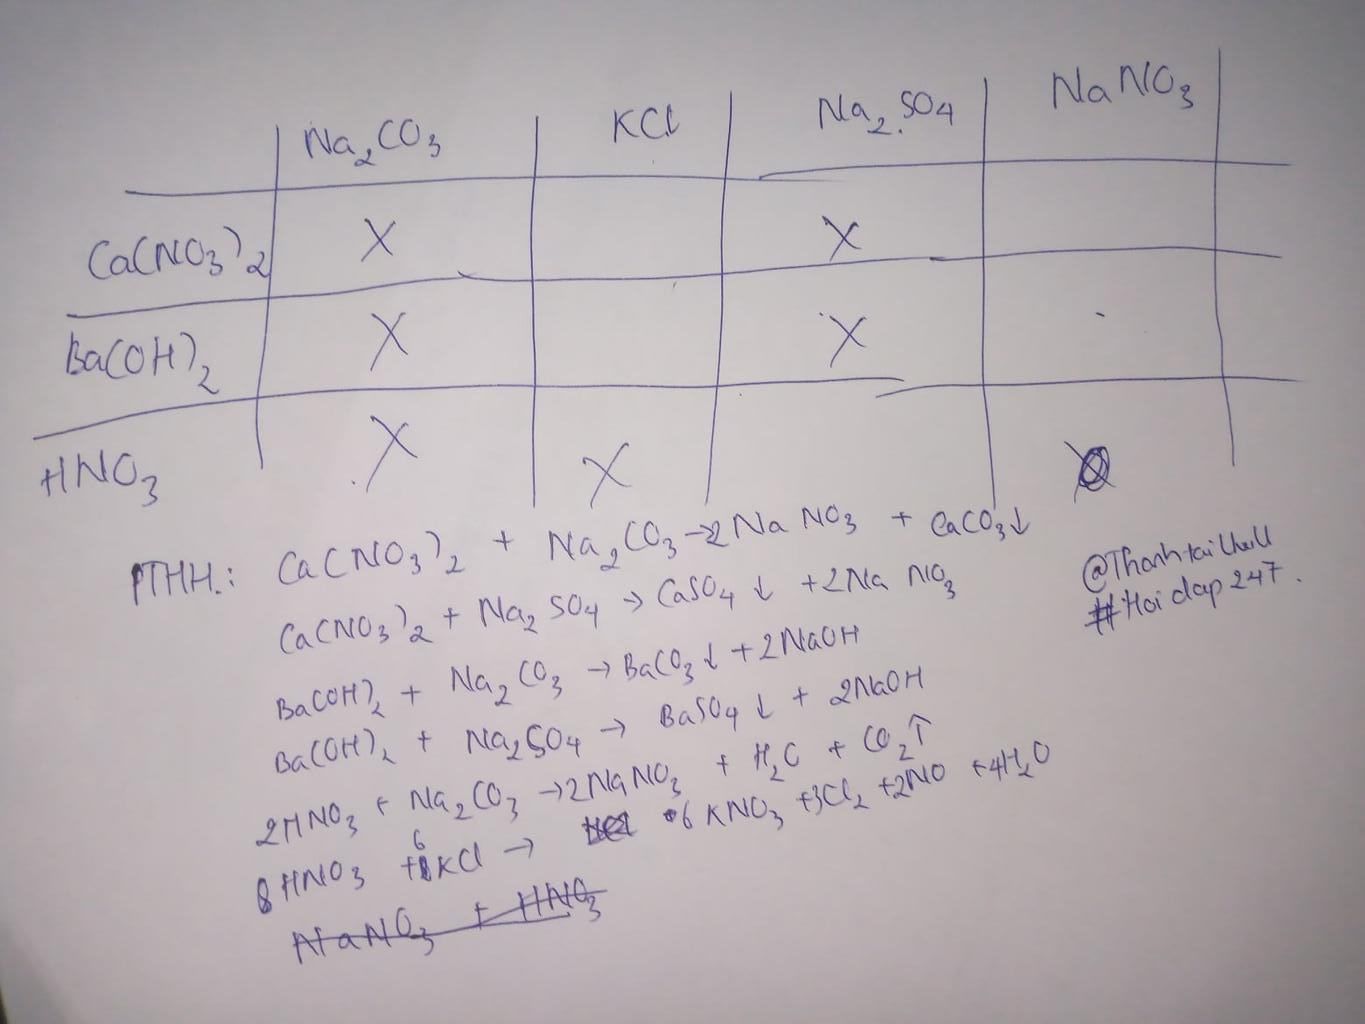 Na₂CO₃ KCl Na₂SO₄ NaNO₃
Ca(NO₃)₂ X X
Ba(OH)₂ X X
HNO₃ X X
PTHH: Ca(NO₃)₂ + Na₂CO₃ → 2NaNO₃ + CaCO₃↓
Ca(NO₃)₂ + Na₂SO₄ → CaSO₄↓ + 2NaNO₃
Ba(OH)₂ + Na₂CO₃ → BaCO₃↓ + 2NaOH
Ba(OH)₂ + Na₂SO₄ → BaSO₄↓ + 2NaOH
2HNO₃ + Na₂CO₃ → 2NaNO₃ + H₂O + CO₂↑
8HNO₃ + 6KCl → 6KNO₃ + 3Cl₂ + 2NO + 4H₂O
NaNO₃ + HNO₃
#Hoidap247.